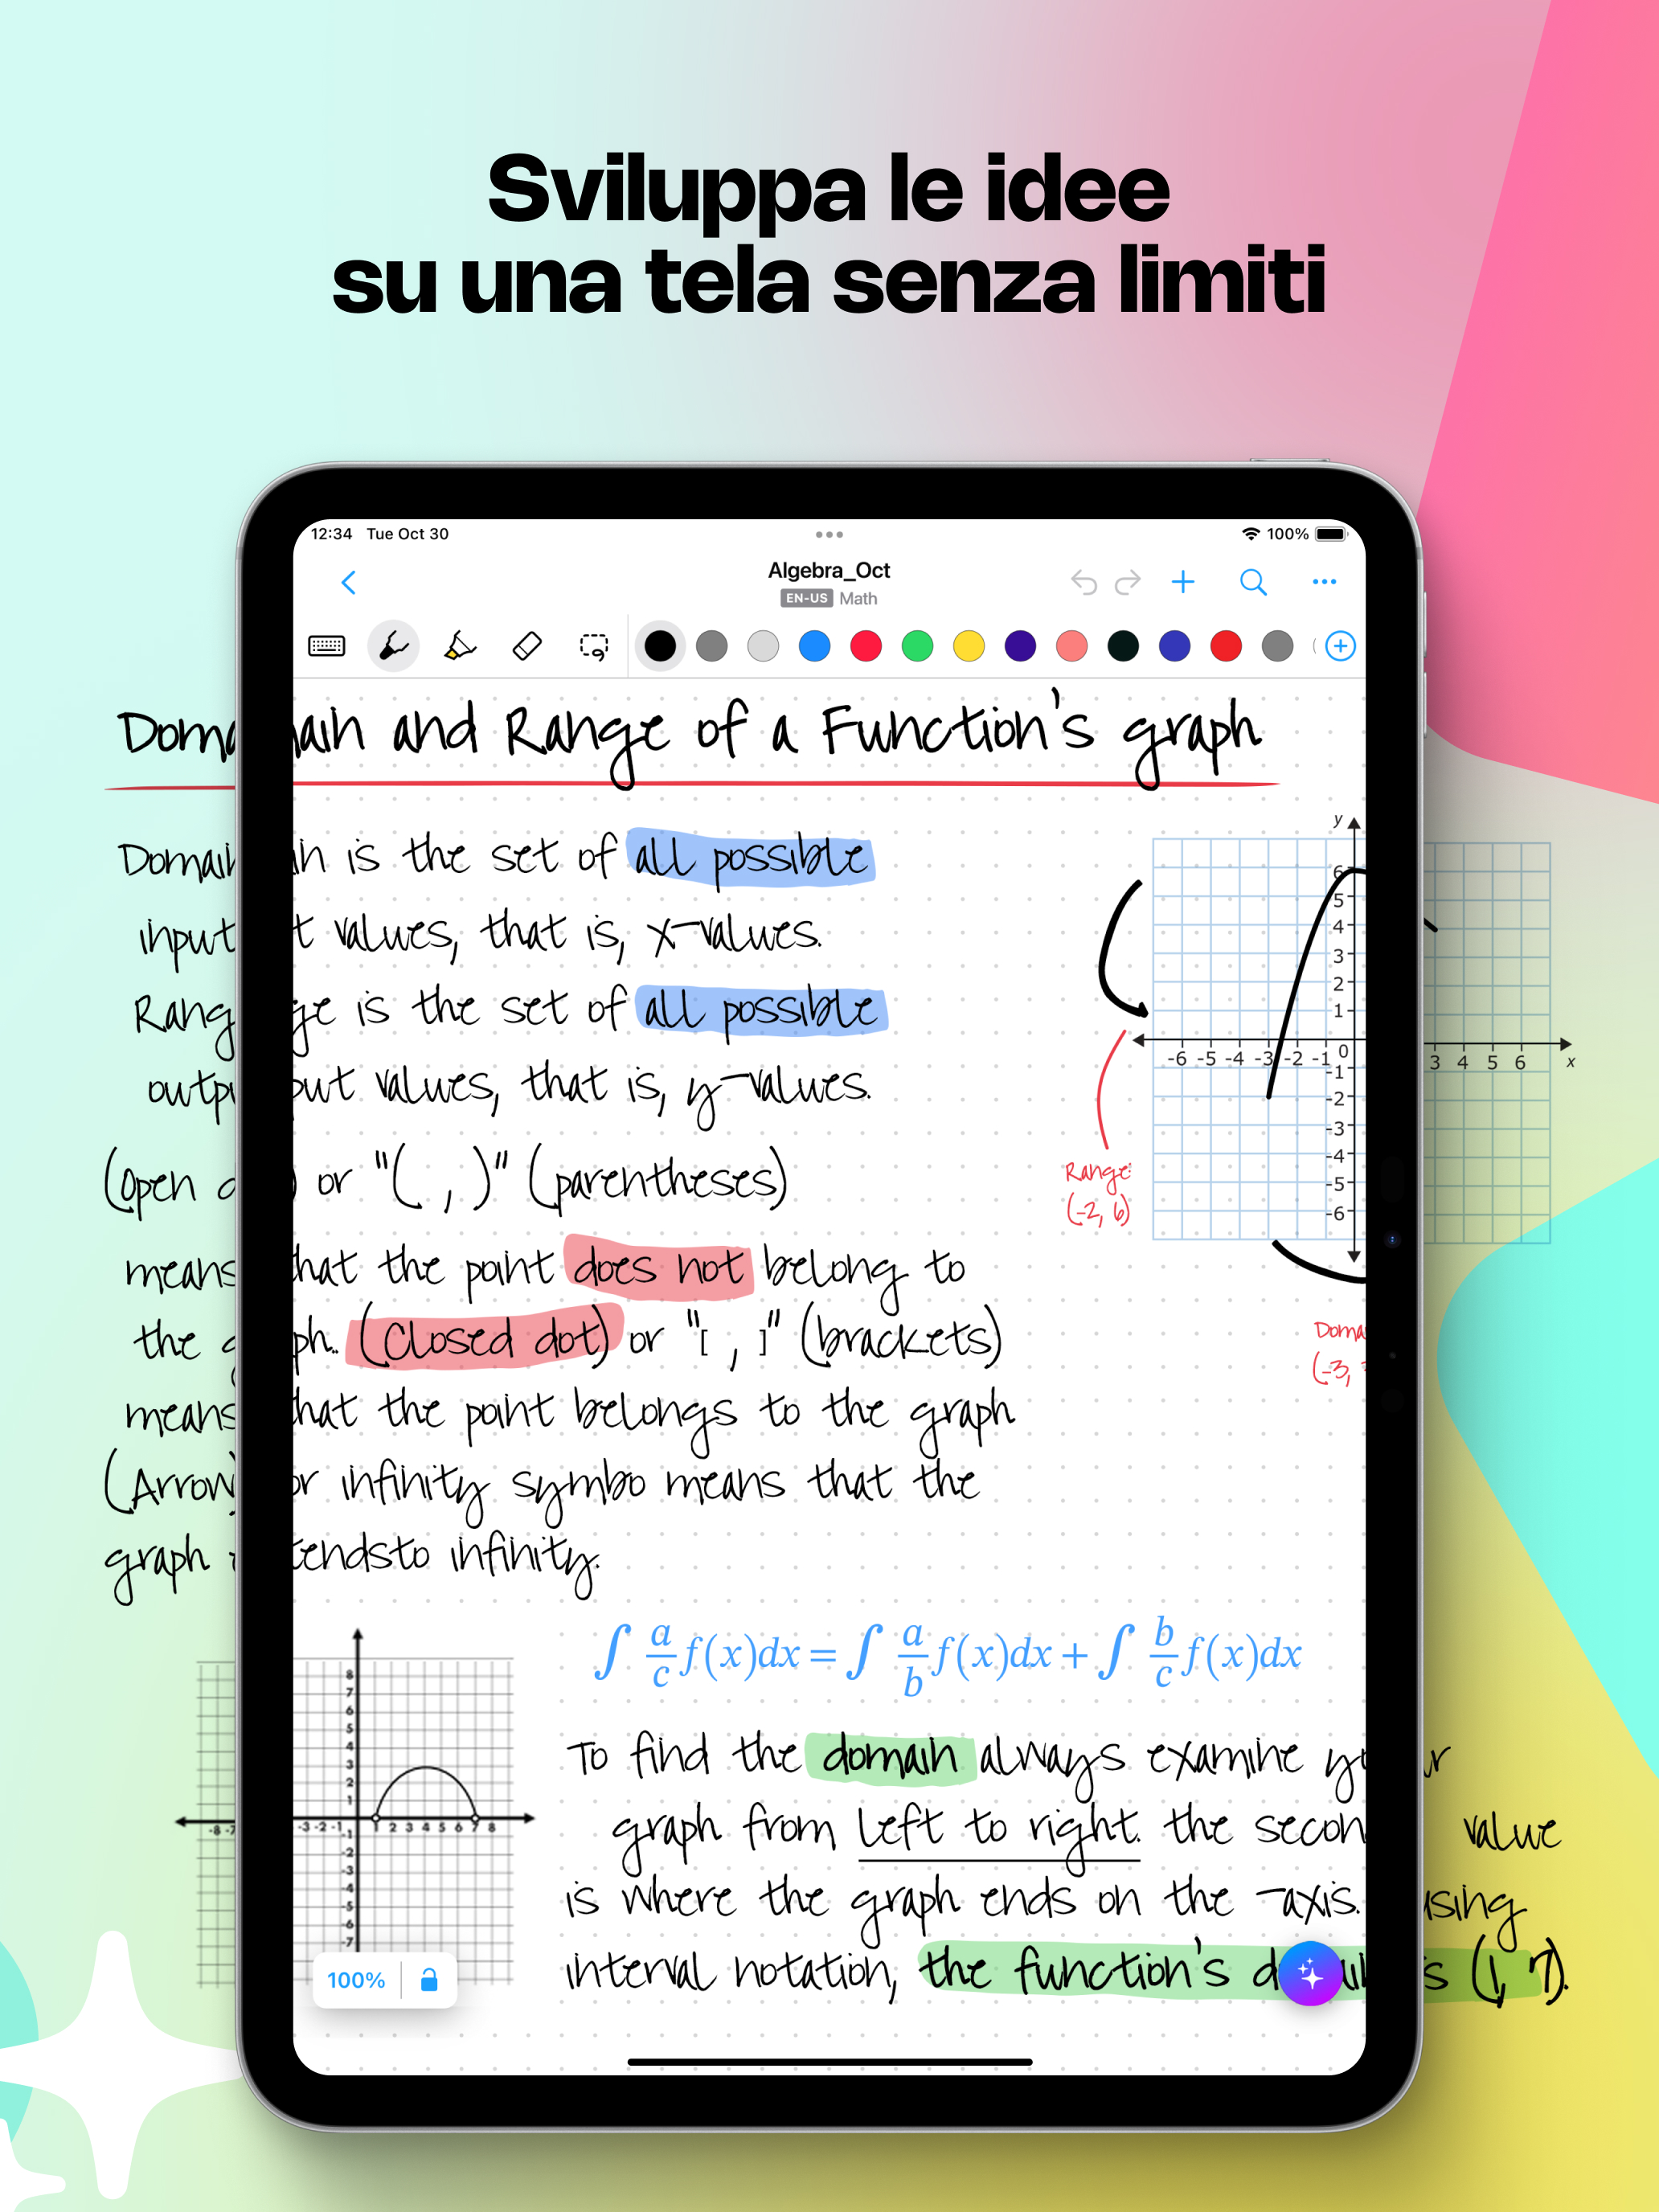 Sviluppa le idee
su una tela senza limiti
12:34 Tue Oct 30
100%
Algebra_Oct
EN-US Math
Doma ain and Range of a Function's graph
Domain in is the set of all possible
input t values, that is, x-values.
Rang ge is the set of all possible
outpu put values, that is, y-values.
(open d ) or "( , )" (parentheses)
means that the point does not belong to
the g ph. (closed dot) or "[ , ]" (brackets)
means that the point belongs to the graph
(Arrow) or infinity symbo means that the
graph tendsto infinity.
y
6
5
4
3
2
1
-6 -5 -4 -3 -2 -1 0 3 4 5 6 x
-1
-2
-3
-4
-5
-6
Range:
(-2, 6)
Doma
(-3,
∫ a/c f(x)dx = ∫ a/b f(x)dx + ∫ b/c f(x)dx
8
7
6
5
4
3
2
1
-8 -7 -3 -2 -1 1 2 3 4 5 6 7 8
-1
-2
-3
-4
-5
-6
-7
To find the domain always examine your
graph from left to right. the secon value
is where the graph ends on the -axis. using
interval notation, the function's d ai s (1, 7).
100%